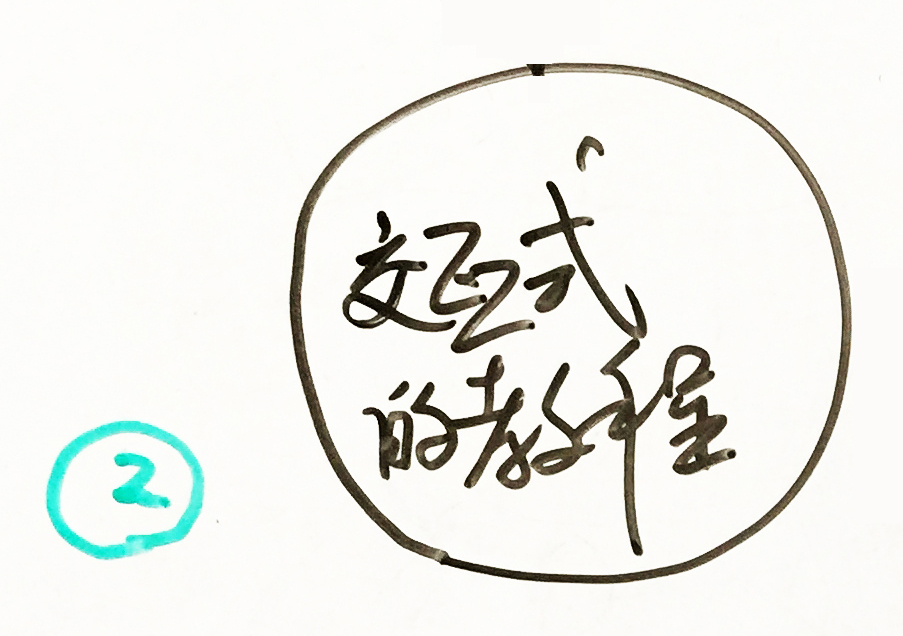 交互式
的教程
2